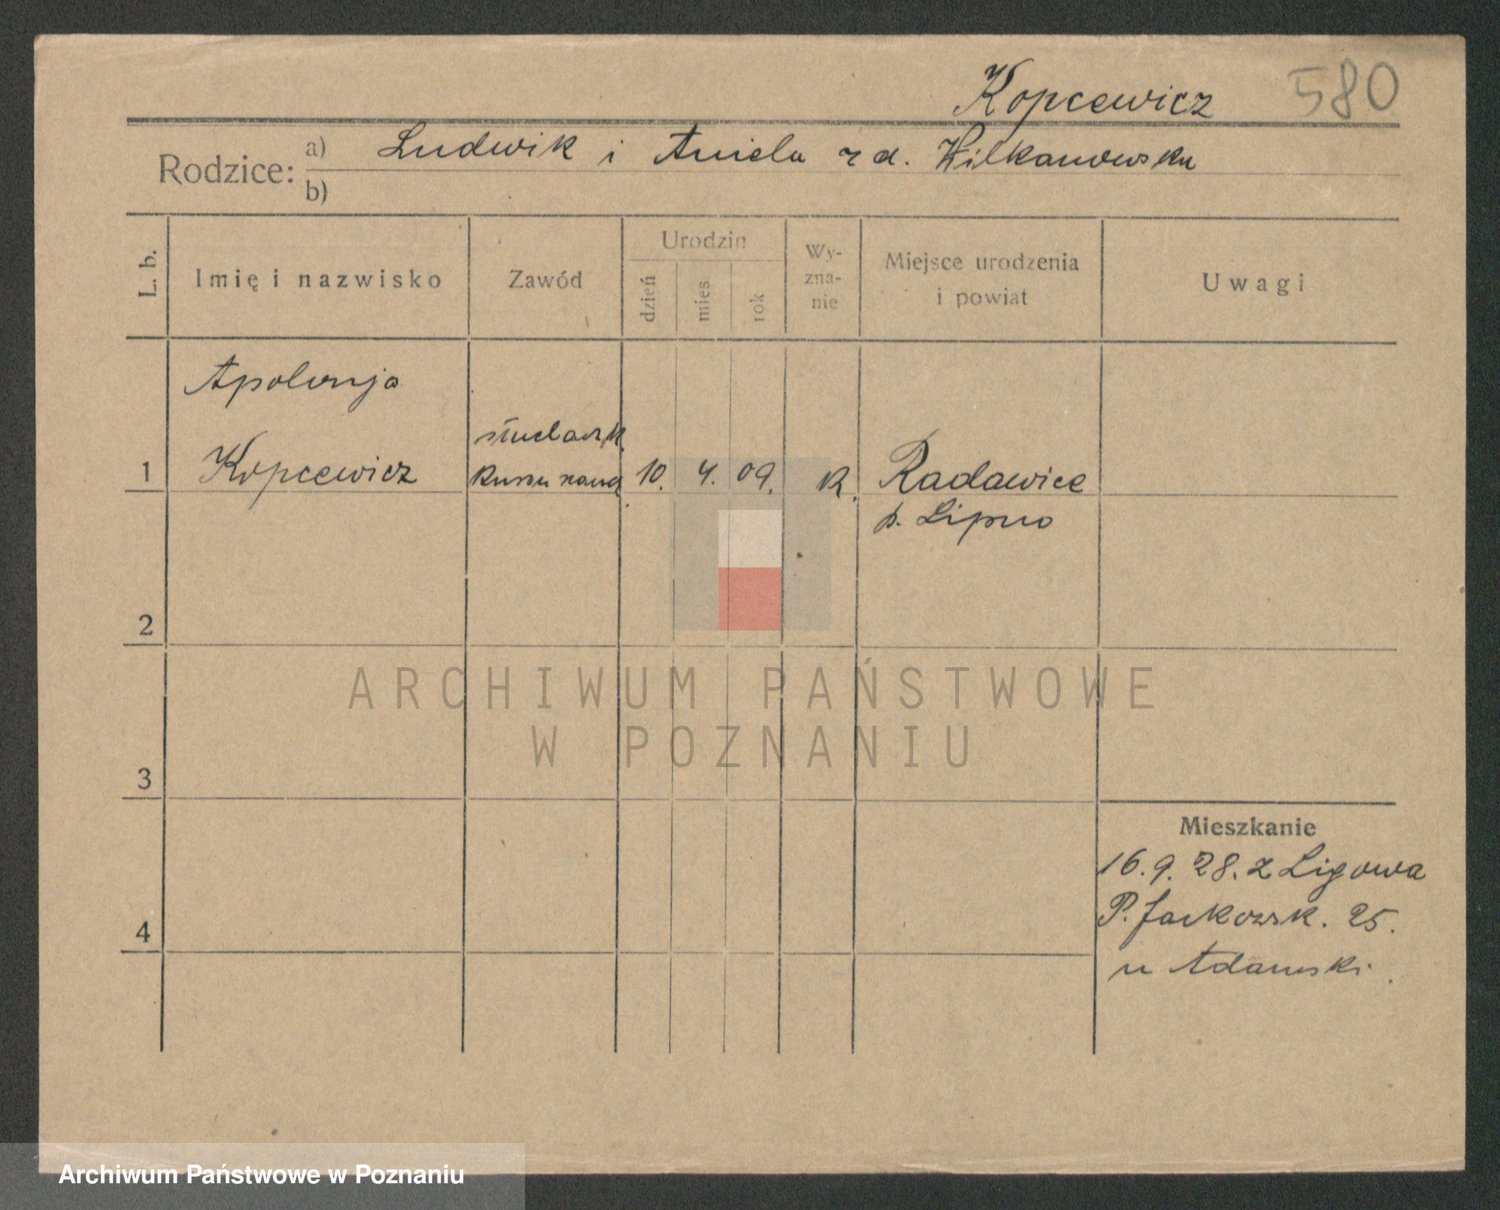 Kopcewicz 580
Rodzice: a) Ludwik i Aniela z d. Wilkanowska
b)
L. b.
Imię i nazwisko
Zawód
Urodzin
dzień
mies
rok
Wy-
zna-
nie
Miejsce urodzenia
i powiat
Uwagi
Apolonja
słuchaczk.
1 Kopcewicz 10. 4. 09. R. Radawice
p. Lipno
2
ARCHIWUM PAŃSTWOWE
W POZNANIU
3
Mieszkanie
16.9.28. z Ligowa
P. Jackowsk. 25.
4
u Adamski.
Archiwum Państwowe w Poznaniu